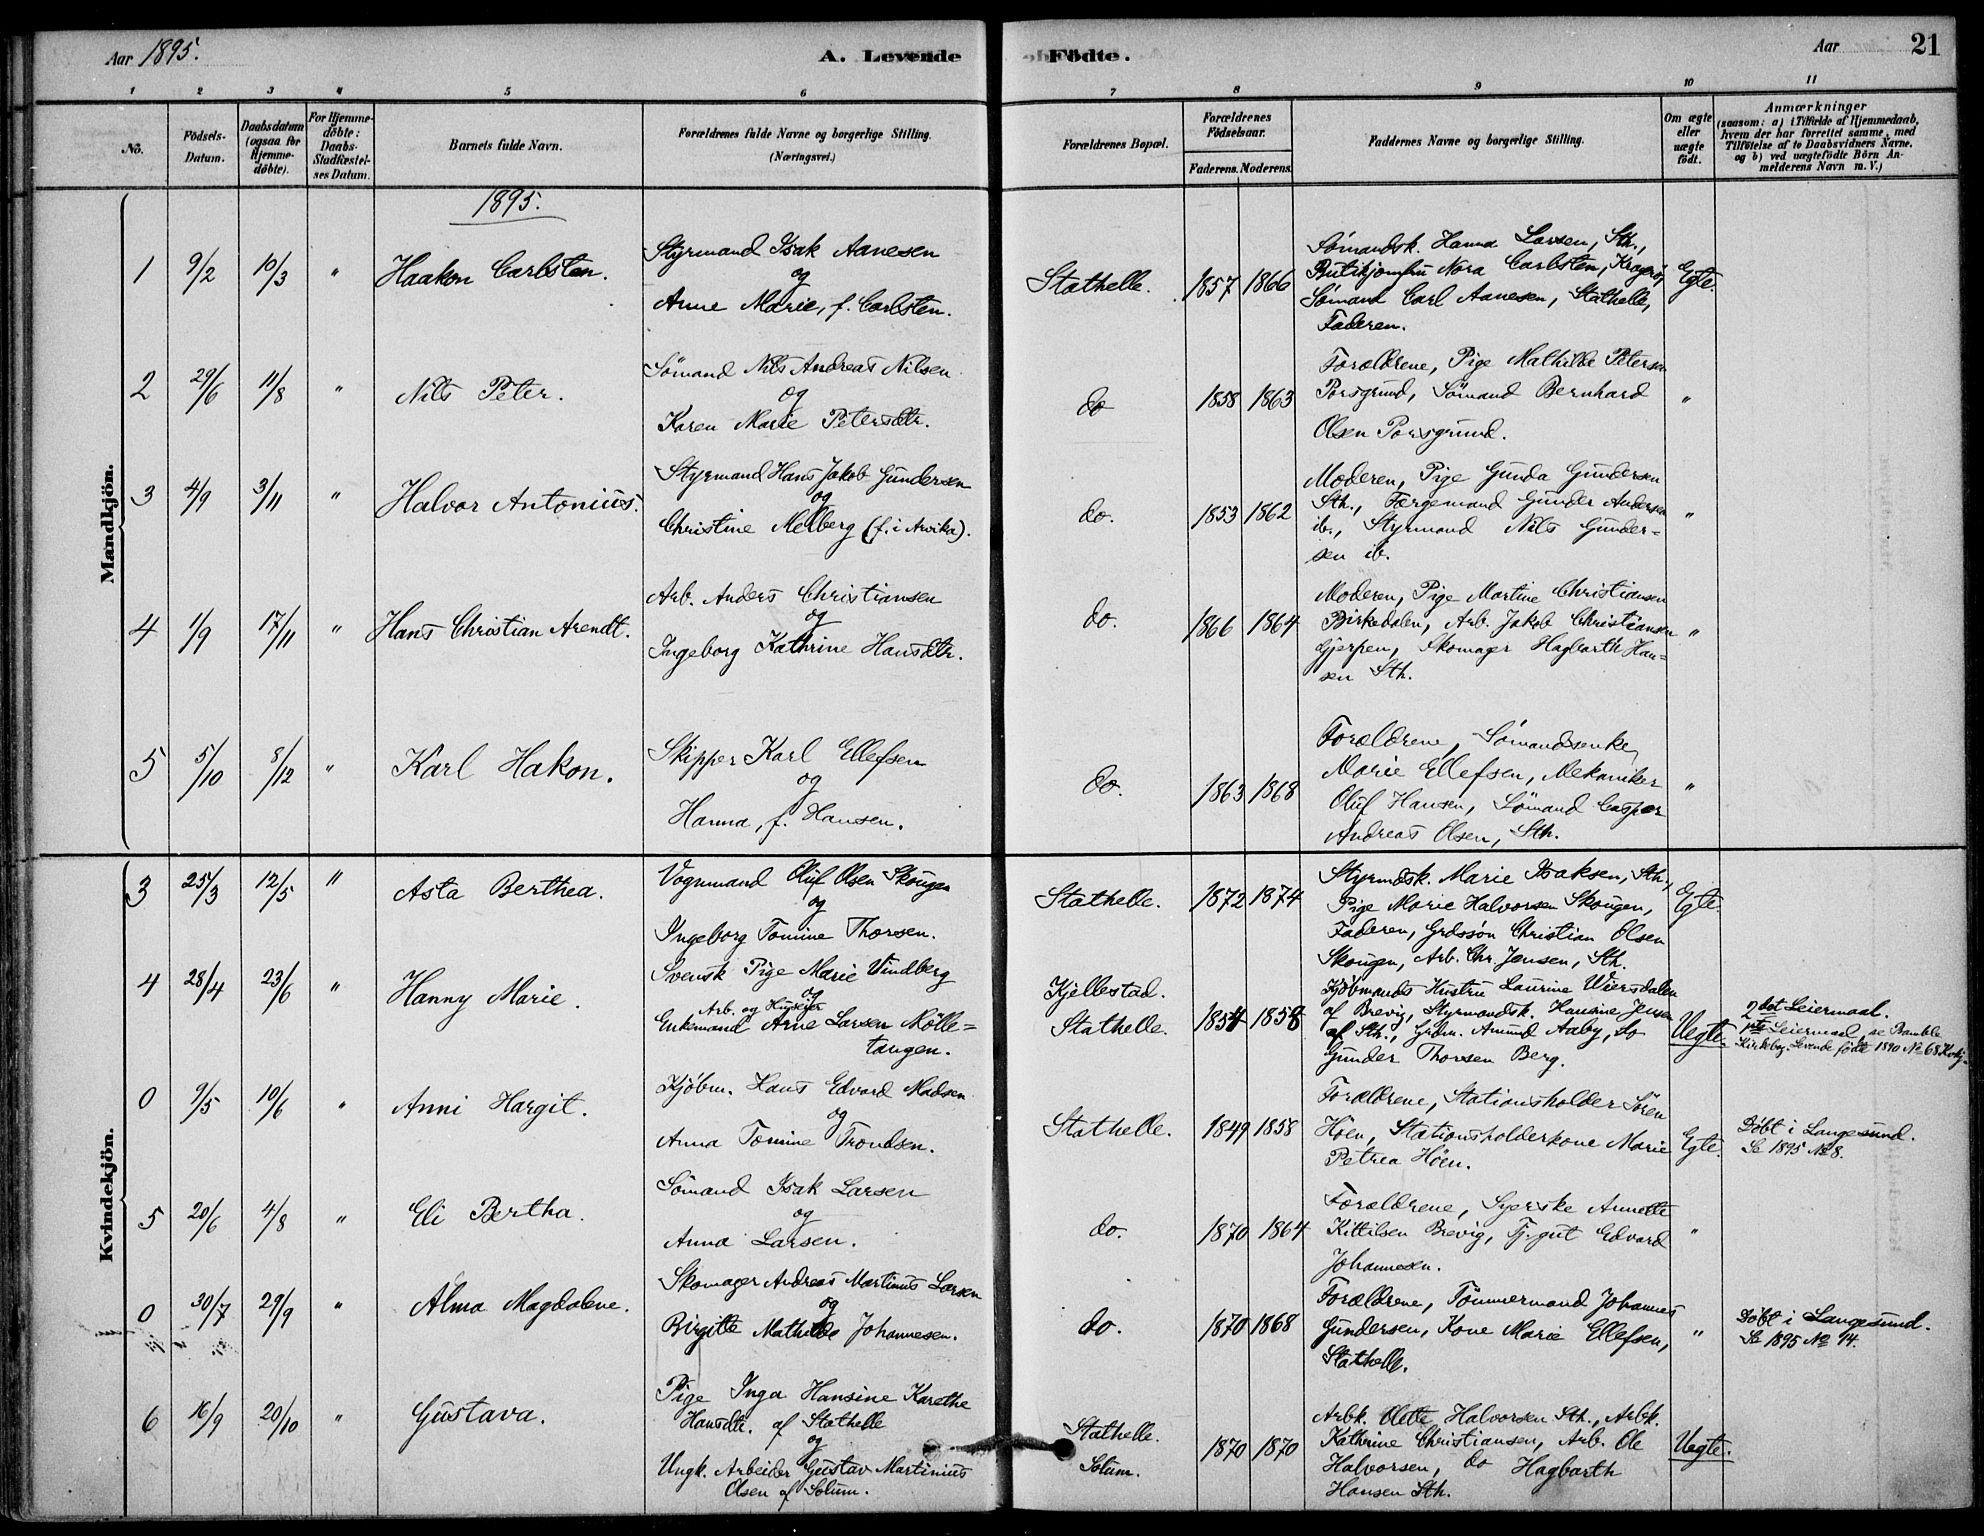 Aar 1895.
A. Levende Födte.
Aar
21
1 2 3 4 5 6 7 8 9 10 11
No.
Födsels-Datum.
Daabsdatum (ogsaa for Hjemme-döbte).
For Hjemme-döbte: Daabs-Stadfæstel-ses Datum.
Barnets fulde Navn.
Forældrenes fulde Navne og borgerlige Stilling.
(Næringsvei.)
Forældrenes Bopæl.
Forældrenes Födselsaar.
Faderens. Moderens.
Faddernes Navne og borgerlige Stilling.
Om ægte eller uægte födt.
Anmærkninger
(saasom: a) i Tilfælde af Hjemmedaab, hvem der har forrettet samme, med Tilföielse af to Daabsvidners Navne. og b) ved uægtefödte Börn An-melderens Navn m. V.)
1895.
Mandkjön.
1 9/2 10/3 " Haakon Carlsten.
Styrmand Isak Aanesen
og
Anne Marie, f. Carlsten.
Stathelle. 1857 1866
Sømandsk. Hanna Larsen, Sth.,
Butikjomfru Nora Carlsten, Kragerø,
Sømand Carl Aanesen, Stathelle,
Faderen.
Egte.
2 29/6 11/8 " Nils Peter.
Sömand Nils Andreas Nilsen
og
Karen Marie Petersdtr.
do 1858 1863
Forældrene, Pige Mathilde Petersen
Porsgrund, Sømand Bernhard
Olsen Porsgrund.
"
3 4/9 3/11 " Halvor Antonius.
Styrmand Hans Jakob Gundersen
og
Christine Melberg (f. i Arvika).
do. 1853 1862
Moderen, Pige Gunda Gundersen
Sth., Færgemand Gunder Andersen
ib., Styrmand Nils Gunder=
sen ib.
"
4 1/9 17/11 " Hans Christian Arendt.
Arb. Anders Christiansen
og
Ingeborg Kathrine Hansdtr.
do. 1866 1864
Moderen, Pige Martine Christiansen
Birkedalen, Arb. Jakob Christiansen
Gjerpen, Skomager Hagbarth Han=
sen Sth.
"
5 5/10 8/12 " Karl Hakon.
Skipper Karl Ellefsen
og
Hanna, f. Hansen.
do. 1863 1868
Forældrene, Sømandsenke
Marie Ellefsen, Mekaniker
Oluf Hansen, Sømand Casper
Andreas Olsen, Sth.
"
Kvindekjön.
3 25/3 12/5 " Asta Berthea.
Vognmand Oluf Olsen Skougen
og
Ingeborg Tomine Thorsen.
Stathelle. 1872 1874
Styrmdsk. Marie Isaksen, Sth.,
Pige Marie Halvorsen Skougen,
Faderen, Grdssøn Christian Olsen
Skougen, Arb. Chr. Jensen, Sth.
Egte.
4 28/4 23/6 " Hanny Marie.
Svensk Pige Marie Vindberg
og
Arb. og Huseier
Enkemand Arne Larsen Mølle=
tangen.
Kjellestad.
Stathelle. 1854 1858
Kjöbmands Hustru Laurine Wiersdalen
af Brevig, Styrmandsk. Hansine Jensen
af Sth., Grdm. Amund Aaby, do
Gunder Thorsen Berg.
Uegte.
2det Leiermaal.
1ste Leiermaal, se Bamble
Kirkebog. Levende födte 1890 No 68
0 9/5 10/6 " Anni Hargit.
Kjøbm. Hans Edvard Madsen
og
Anna Tomine Trondsen.
Stathelle. 1849 1858
Forældrene, Stationsholder Sören
Höen, Stationsholderkone Marie
Petrea Höen.
Egte.
Døbt i Langesund.
Se 1895 No 8.
5 20/6 4/8 " Eli Bertha.
Sömand Isak Larsen
og
Anna Larsen.
do. 1870 1864
Forældrene, Syerske Annette
Kittilsen Brevig, Tj.gut Edvard
Johannesen.
"
0 30/7 29/9 " Alma Magdalene.
Skomager Andreas Martinus Larsen
og
Birgitte Mathilde Johannesen.
do. 1870 1868
Forældrene, Tömmermand Johannes
Gundersen, Kone Marie Ellefsen,
Stathelle.
"
Døbt i Langesund.
Se 1895 No 14.
6 16/9 20/10 " Gustava.
Pige Inga Hansine Karethe
Hansdtr. af Stathelle
og
Ungk. Arbeider Gustav Martinius
Olsen af Solum.
Stathelle.
Solum. 1870 1870
Arbk. Olette Halvorsen Sth., Arbk.
Kathrine Christiansen, Arb. Ole
Halvorsen, do Hagbarth
Hansen Sth.
Uegte.